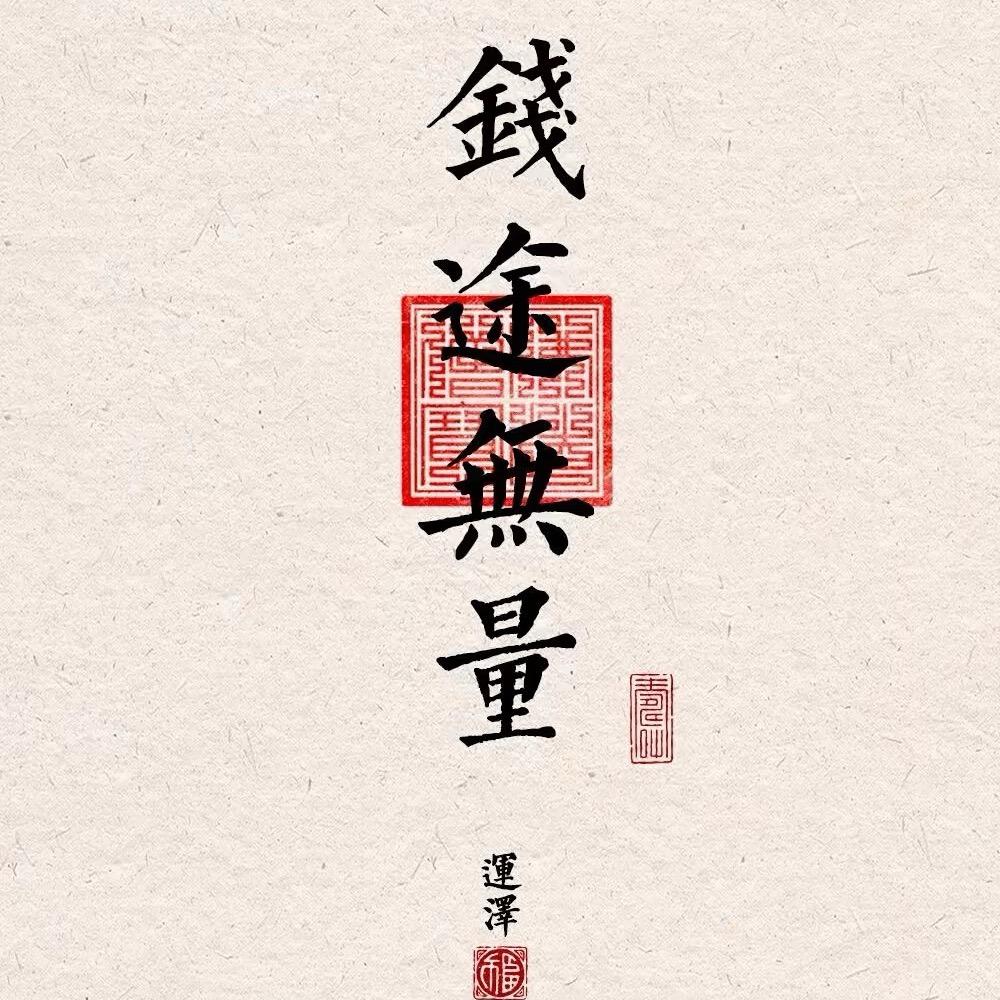 錢途無量
運澤
福